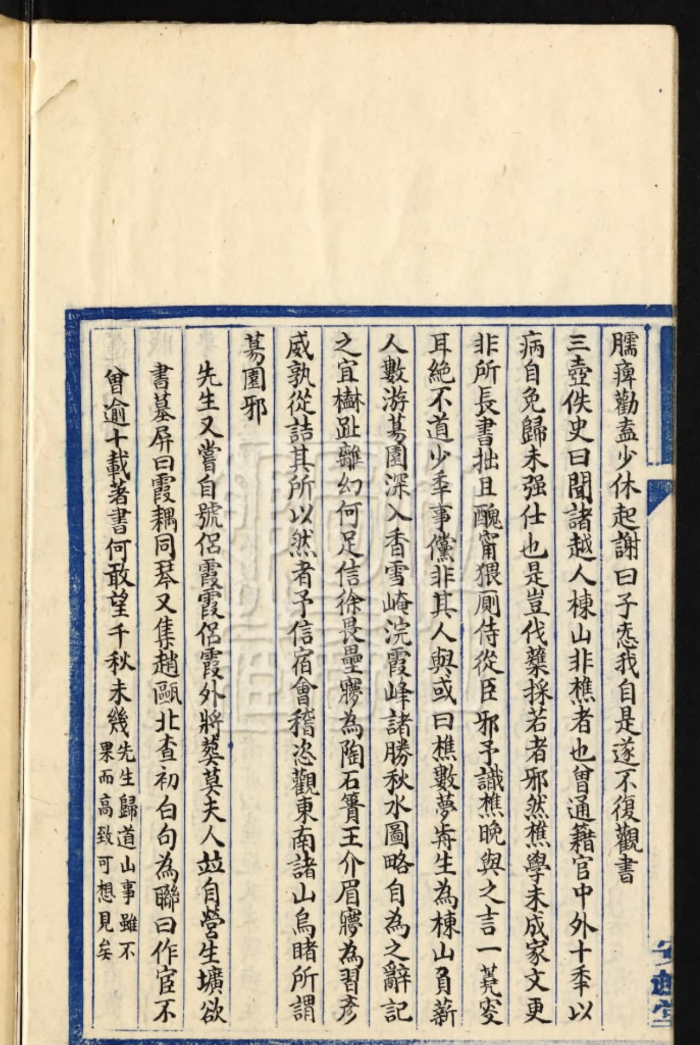 臑痺勸盍少休起謝曰子悫我自是遂不復觀書
三壺佚史曰聞諸越人棟山非樵者也曾通籍官中外十秊以
病自免歸未强仕也是豈伐蘖採若者邪然樵學未成家文更
非所長書拙且醜甯猥厠侍從臣邪予識樵晚與之言一
耳絶不道少秊事儻非其人與或曰樵數夢歬生為棟山負薪
人數游蕮園深入香雪崦浣霞峰諸勝秋水圖略自為之辭記
之宜櫯趾離幻何足信徐畏壘寱為陶石簣王介眉寱為習彥
威孰從詰其所以然者予信宿會稽恣觀東南諸山烏睹所謂
蕮園邪
先生又嘗自號侶霞霞侶霞外將葬莫夫人竝自營生壙欲
書墓屏曰霞耦同琴又集趙甌北查初白句為聯曰作宦不
曾逾十載著書何敢望千秋未幾先生歸道山事雖不
果而高致可想見矣